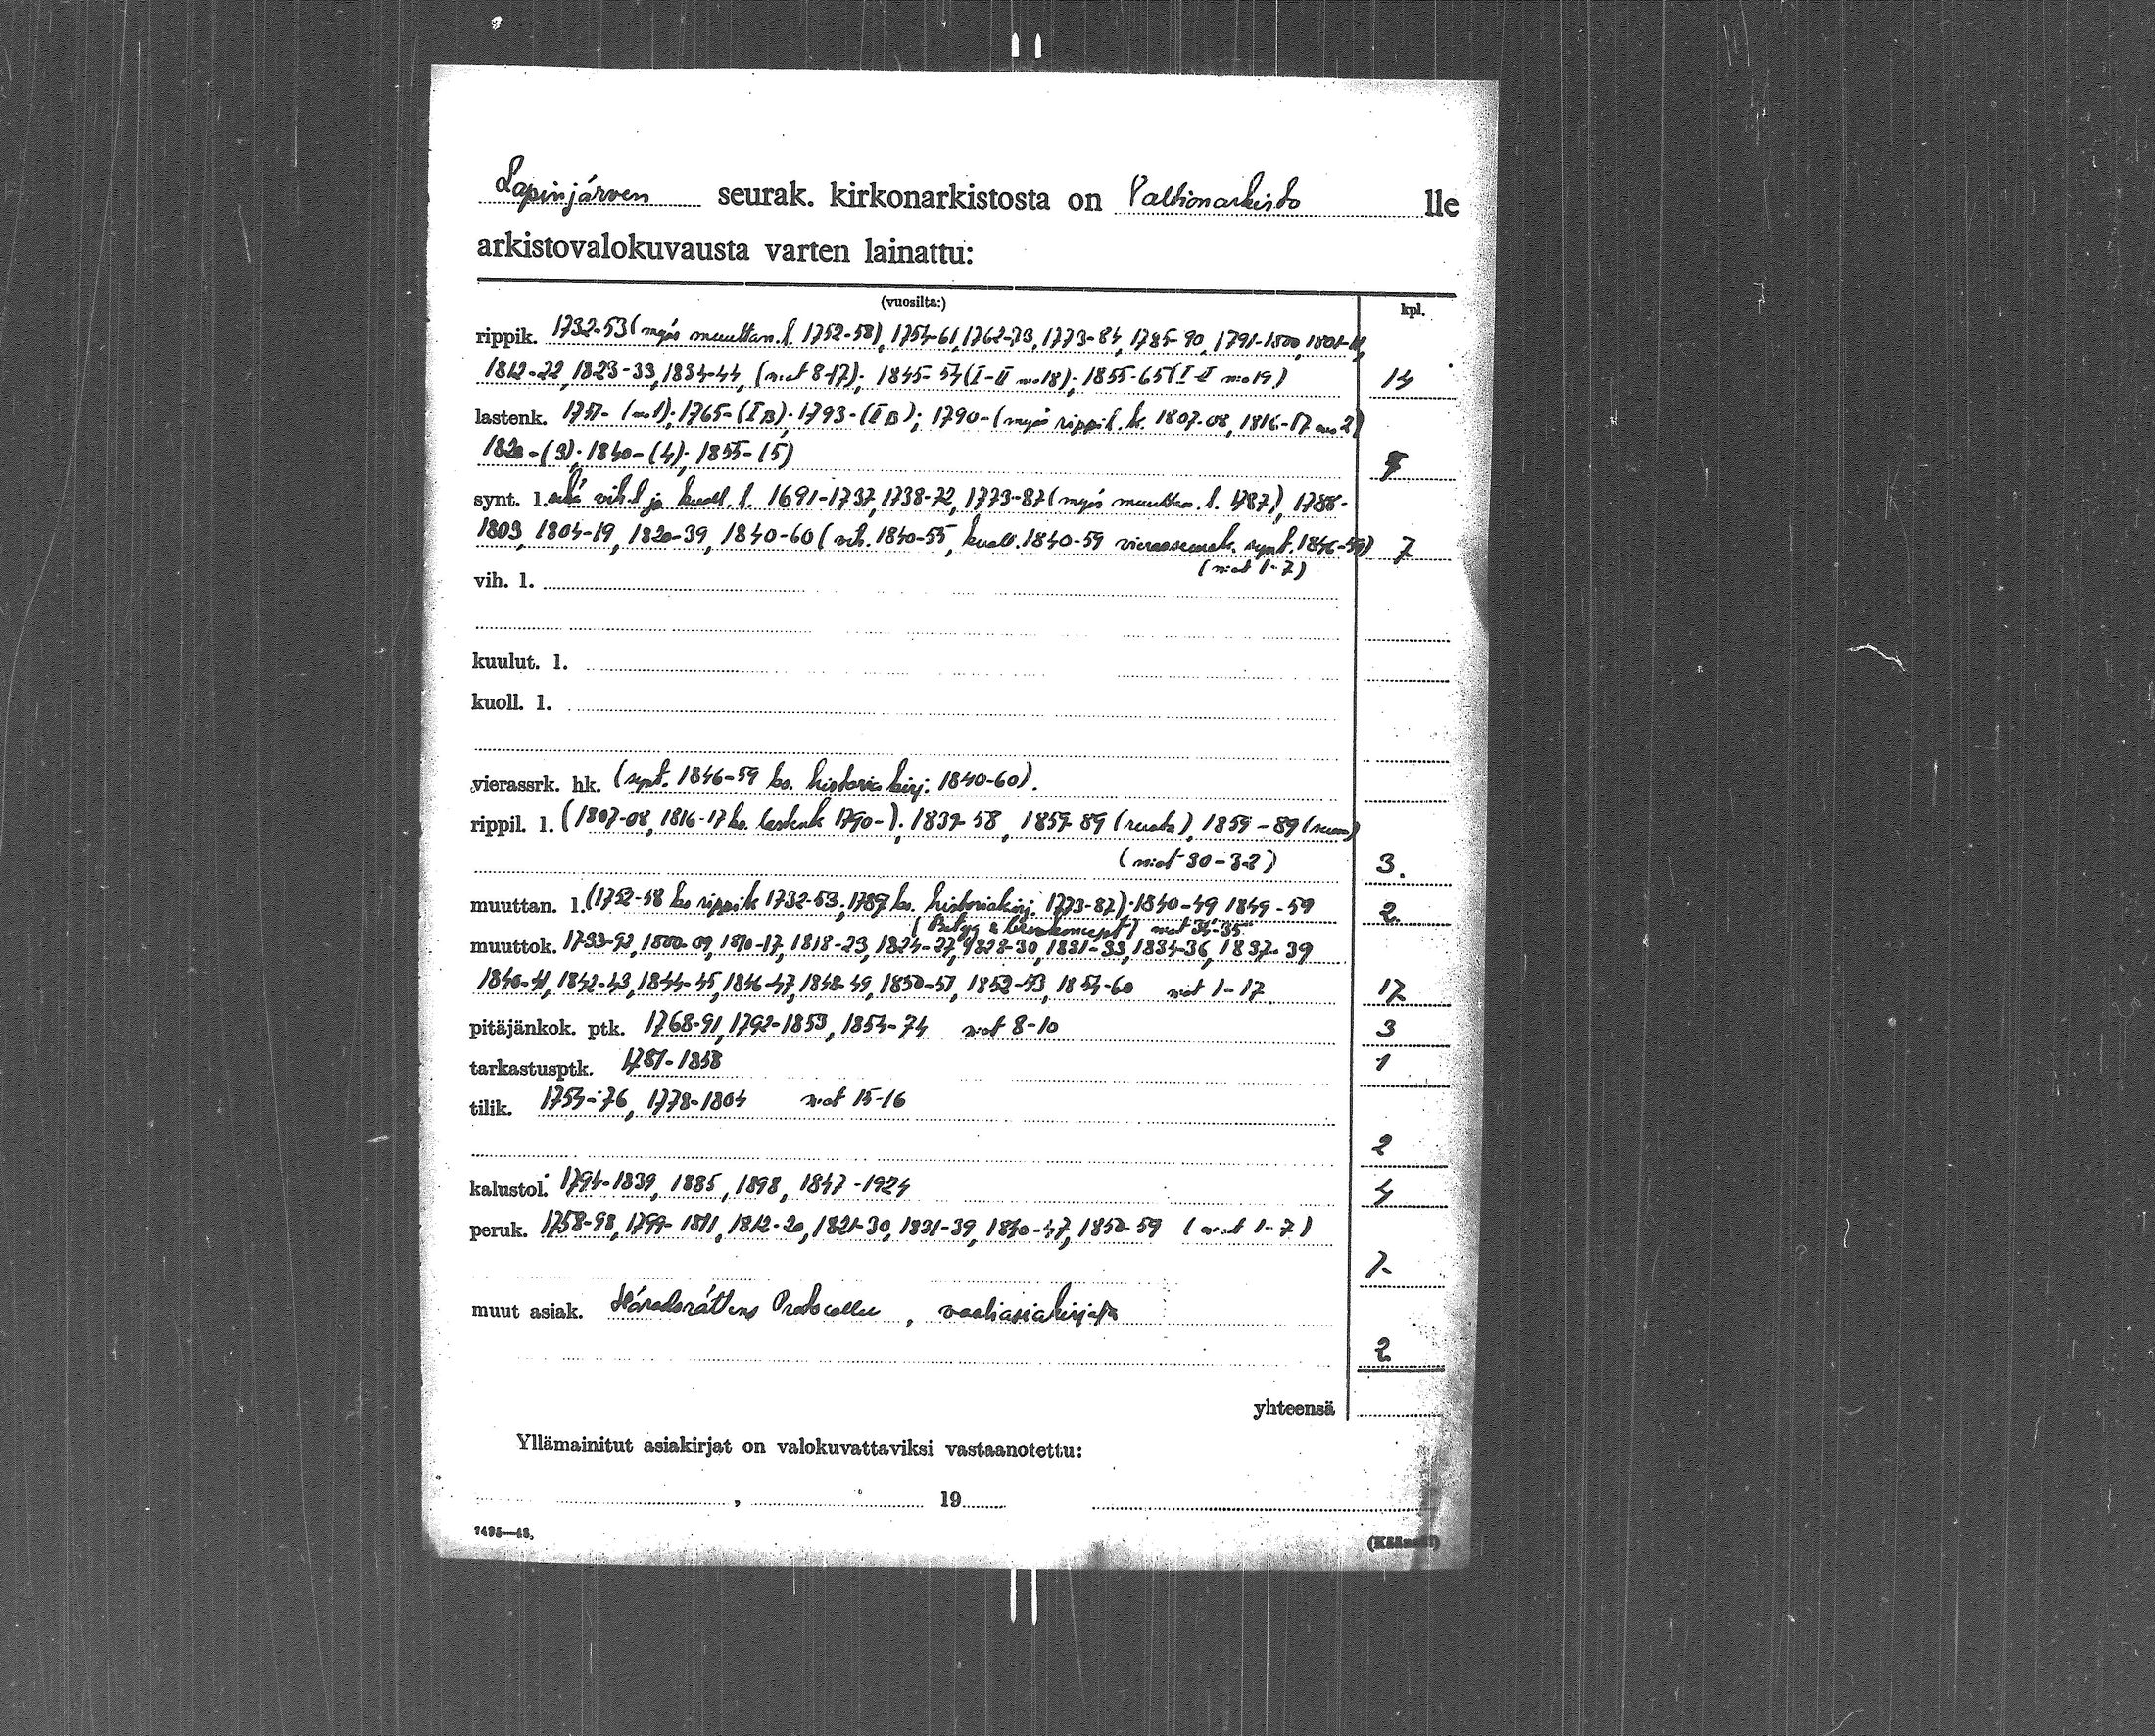 Lapinjärven seurak. kirkonarkistosta on Valtionarkisto lle
arkistovalokuvausta varten lainattu:
(vuosilta:) kpl.
rippik. 1732-53 (myös muuttan. l. 1752-58), 1754-61, 1762-73, 1773-84, 1785-90, 1791-1800, 1801-11,
1812-22, 1823-33, 1834-44, (n:ot 8-17); 1845-54 (I-II n:o 18); 1855-65 (I-II n:o 19) 14
lastenk. 1751- (n:o 1); 1765- (I B); 1793- (II B); 1790- (myös rippil. k. 1807-08, 1816-17 n:o 2)
1820- (3); 1840- (4); 1855- (5)
synt. l. sekä vih. l. ja kuoll. l. 1691-1737, 1738-72, 1773-87 (myös muuttan. l. 1787), 1788-
1803, 1804-19, 1820-39, 1840-60 (vih. 1840-55, kuoll. 1840-59 vierasseurak. synt. 1846-59) 7
(n:ot 1-7)
vih. l.
kuulut. l.
kuoll. l.
vierassrk. hk. (synt. 1846-59 ks. historiakirj. 1840-60).
rippil. l. (1807-08, 1816-17 ks. lastenk 1790-); 1839-58, 1859-89 (ruots), 1859-89 (suom)
(n:ot 30-32) 3.
muuttan. l. (1752-58 ks rippik 1732-53; 1787 ks. historiakirj. 1773-87); 1840-49 1849-59 2.
n:ot 34-35
muuttok. 1793-92, 1800-09, 1810-17, 1818-23, 1824-27, 1828-30, 1831-33, 1834-36, 1837-39
1840-41, 1842-43, 1844-45, 1846-47, 1848-49, 1850-51, 1852-53, 1854-60 n:ot 1-17 17
pitäjänkok. ptk. 1768-91, 1792-1853, 1854-74 n:ot 8-10 3
tarkastusptk. 1781-1858 1
tilik. 1754-76, 1778-1804 n:ot 15-16
2
kalustol. 1794-1839, 1885, 1898, 1847-1924 4
peruk. 1758-98, 1799-1811, 1812-20, 1821-30, 1831-39, 1840-47, 1850-59 (n:ot 1-7)
7
muut asiak. Häradsrättens Protocoller, vaaliasiakirjoja
2
yhteensä
Yllämainitut asiakirjat on valokuvattaviksi vastaanotettu:
, 19
7495—48.
(Käännä)